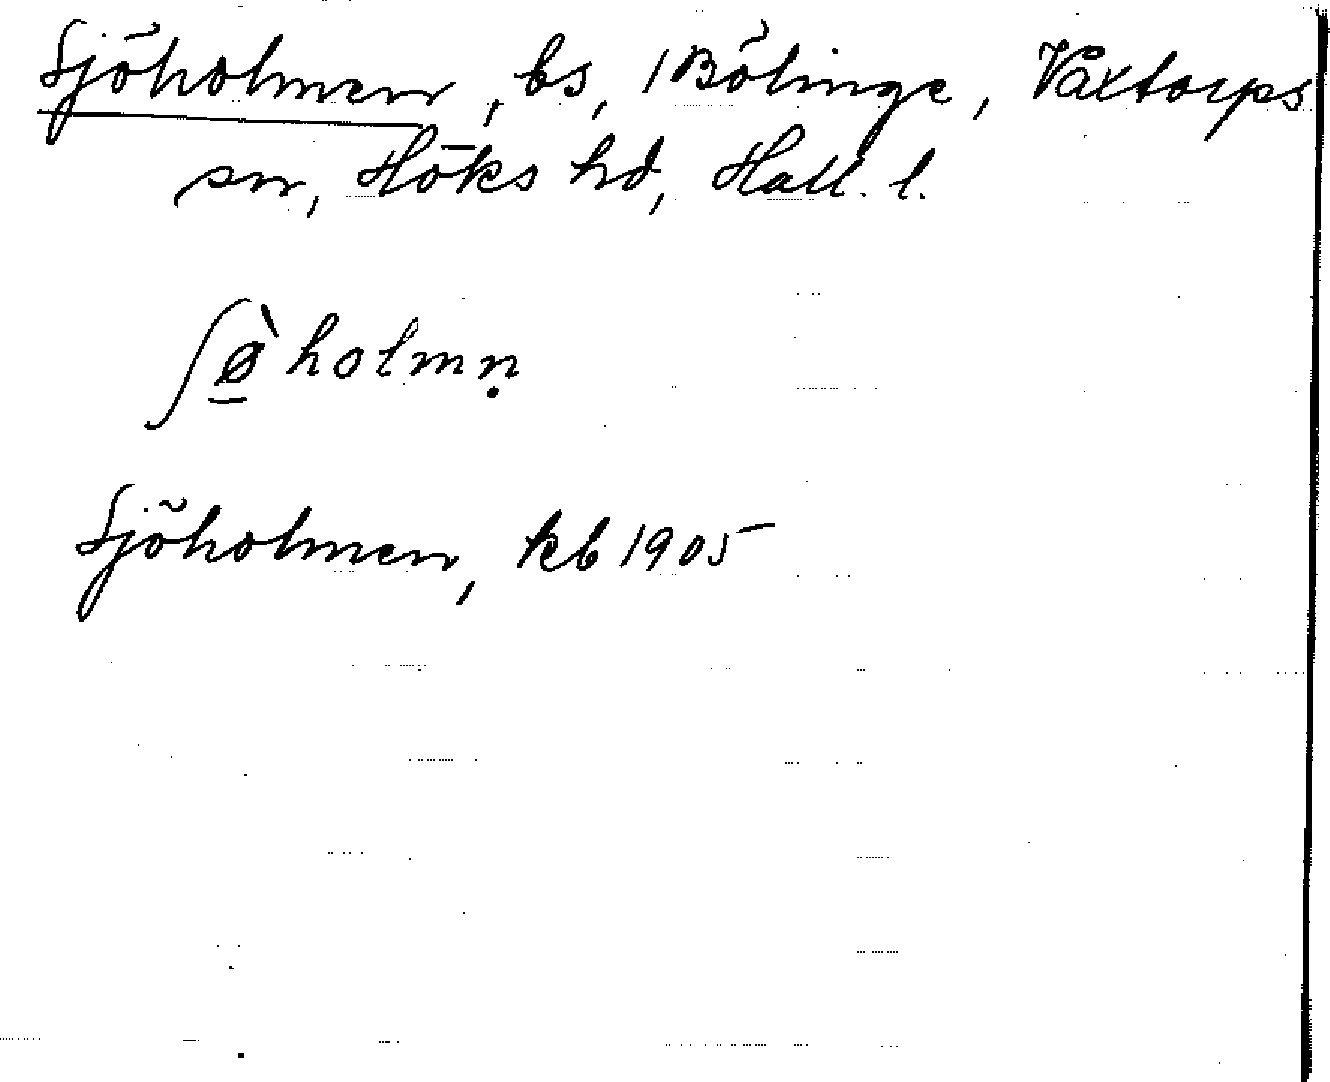 Sjöholmen, bs, 1 Bölinge, Våxtorps
sn, Höks hd, Hall. l.
ʃø̠̀holmṇ
Sjöholmen, kb 1905